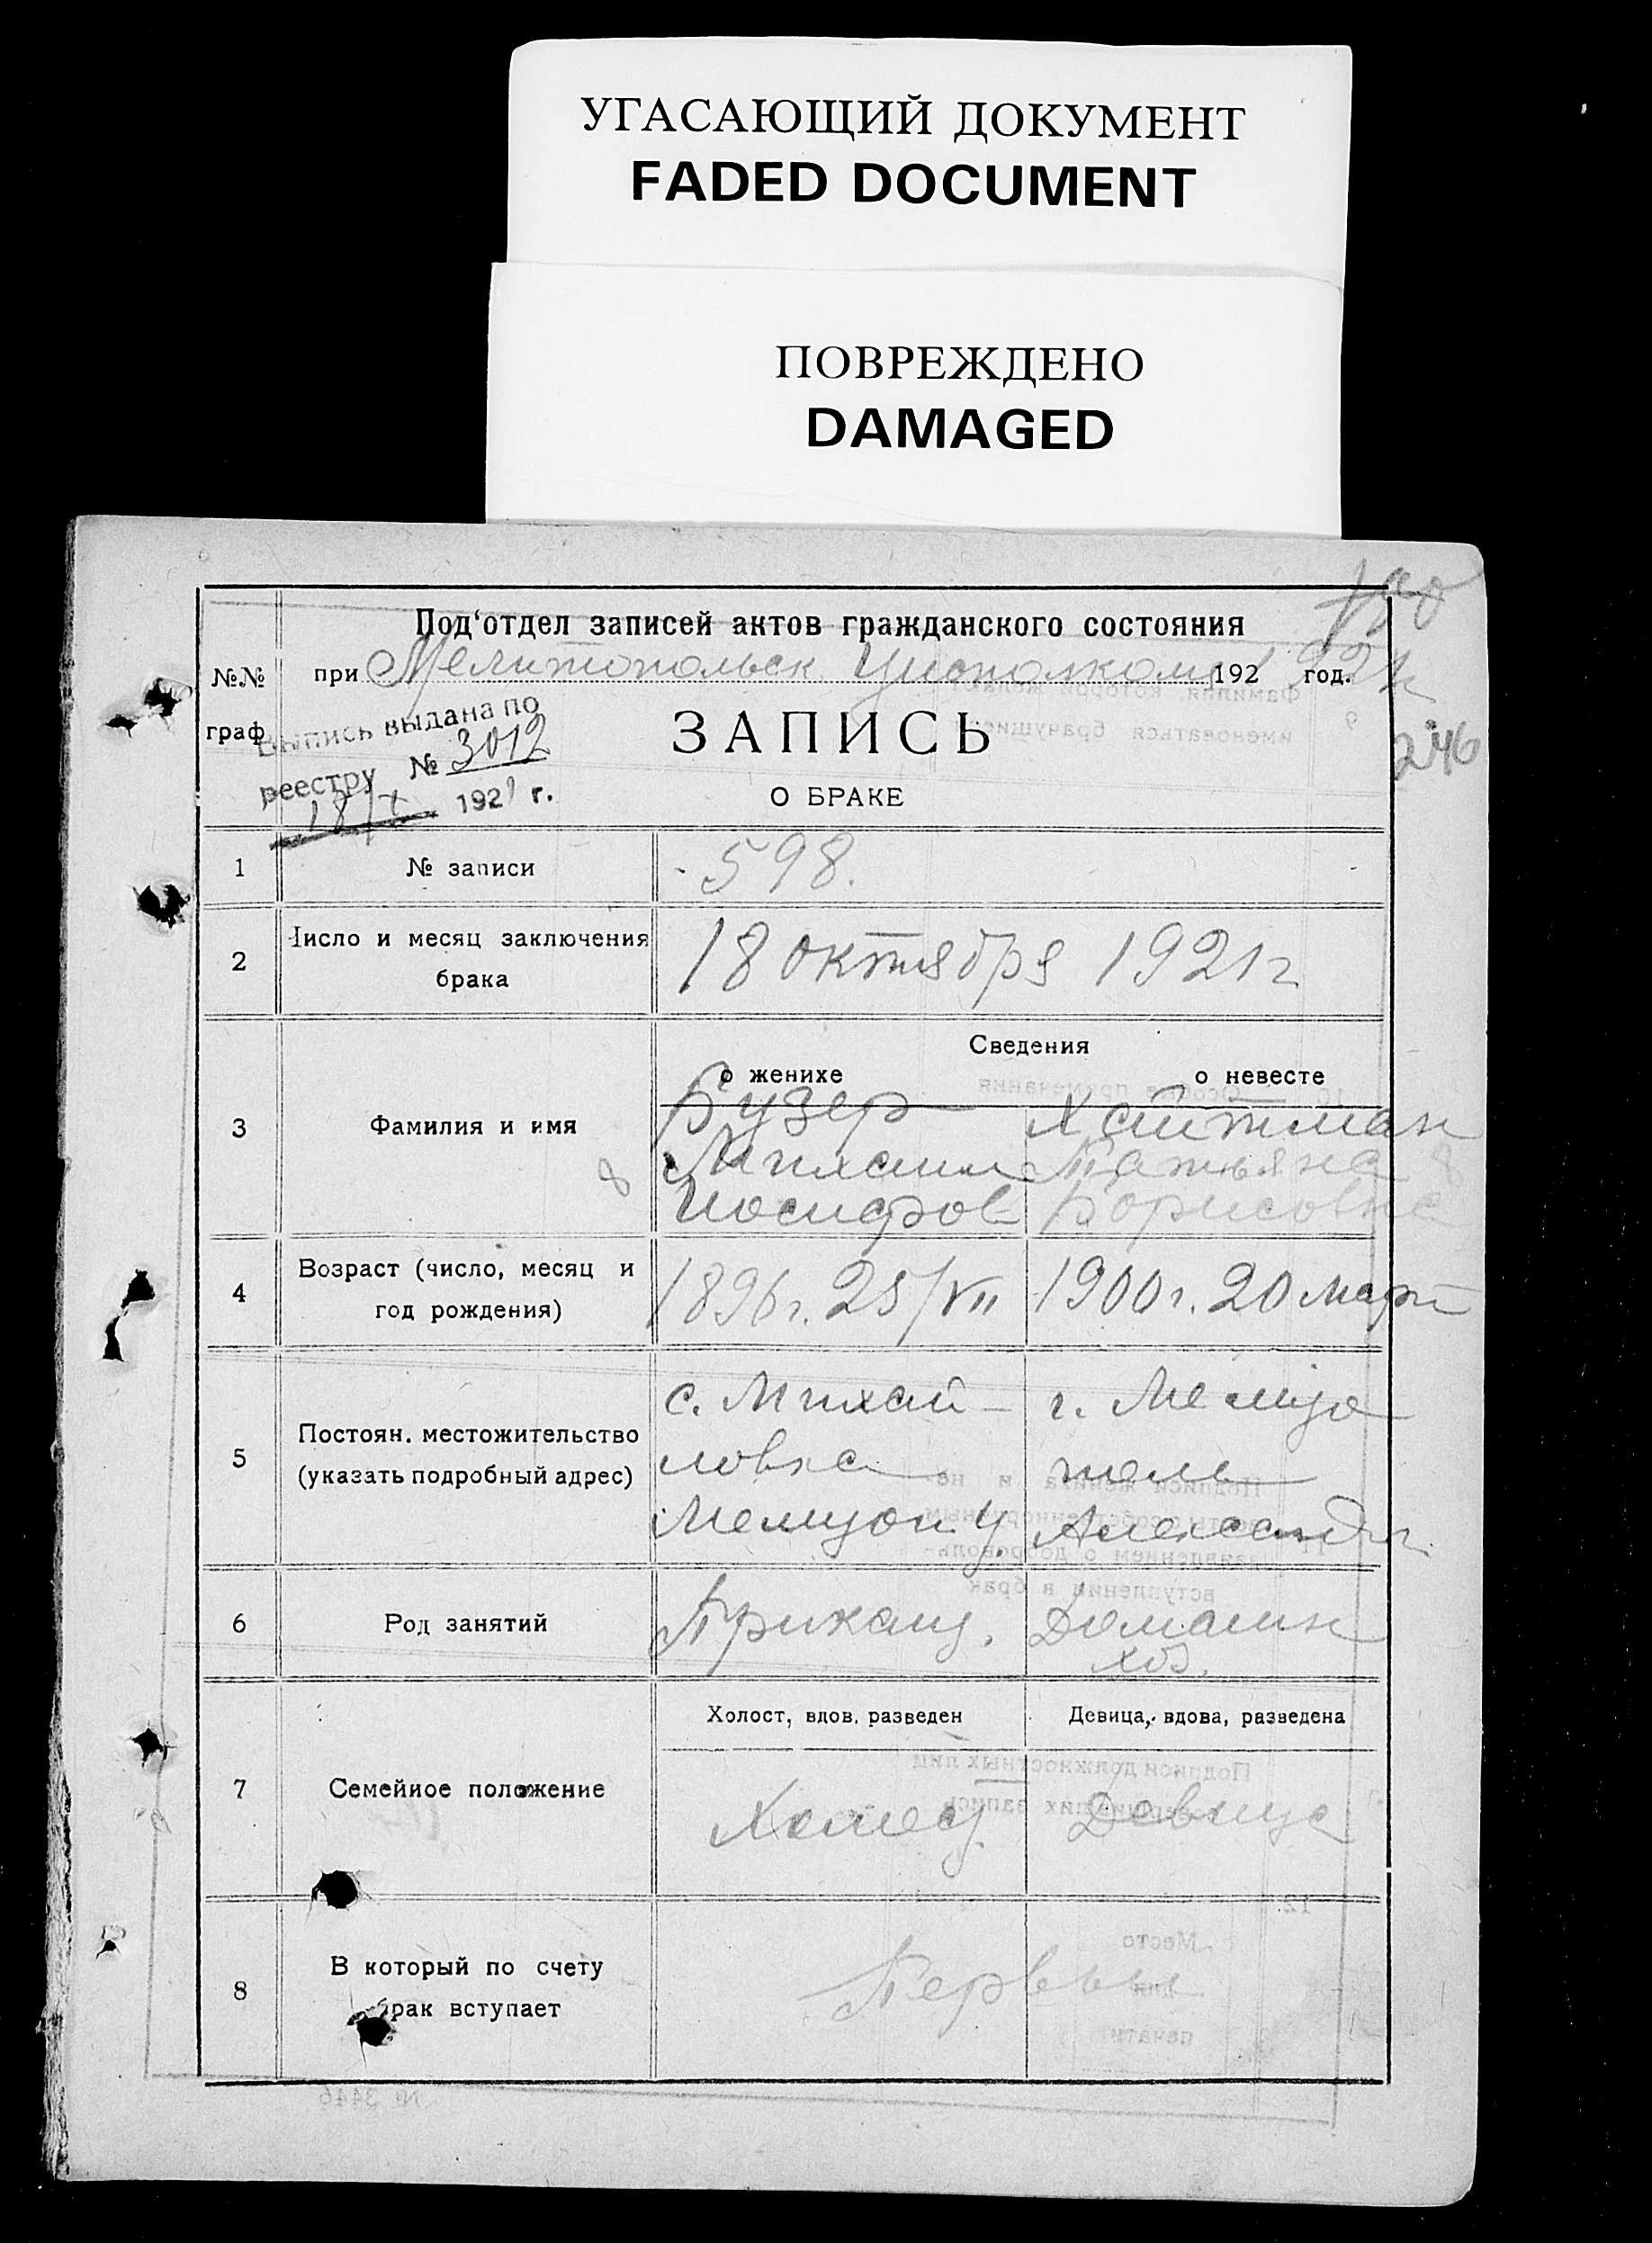 УГАСАЮЩИЙ ДОКУМЕНТ
FADED DOCUMENT
ПОВРЕЖДЕНО
DAMAGED
Под'отдел записей актов гражданского состояния
№№ граф
при Мелитопольск Уисполкоме 192 год.
246
Выпись выдана по
реестру № 3012
18/X 1921 г.
ЗАПИСЬ
О БРАКЕ
1 № записи 598.
2 Число и месяц заключения брака 18 октября 1921 г
Сведения
о женихе о невесте
3 Фамилия и имя
Бузер Хайтман
Михаил Татьяна
Иосифов Борисовна
4 Возраст (число, месяц и год рождения) 1896 г. 25/VII 1900 г. 20 март
5 Постоян. местожительство (указать подробный адрес)
с. Михай- г. Мелито
ловка поль
Мелитоп. у. Александр
6 Род занятий Прикащ. Домашн хоз.
Холост, вдов. разведен Девица, вдова, разведена
7 Семейное положение Холост Девица
8 В который по счету брак вступает Первый
№ 3446